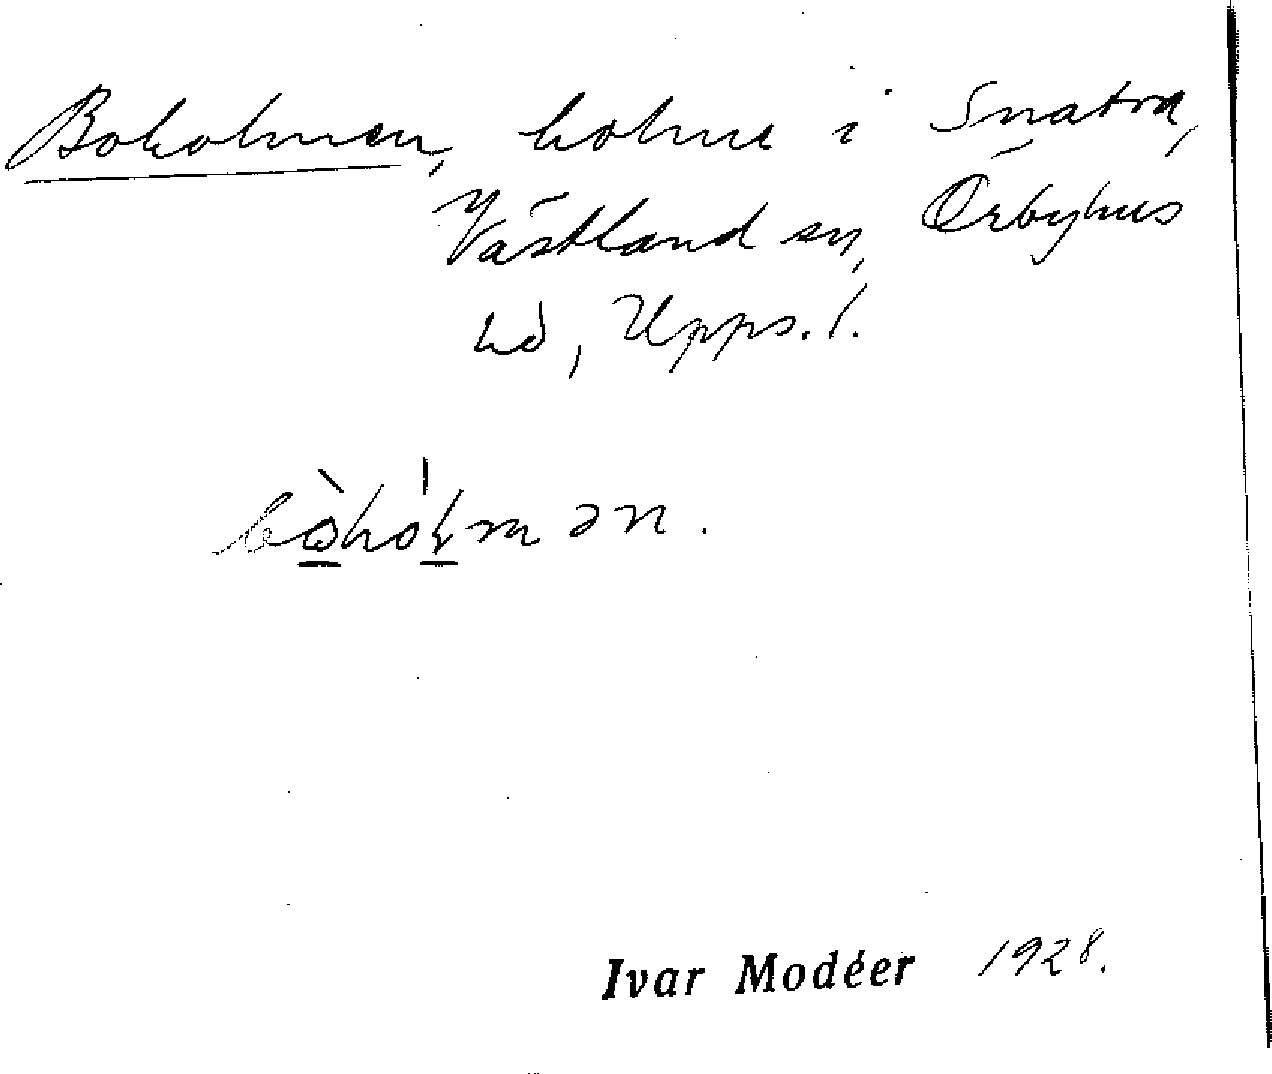 Boholmen, holme i Snatra,
Västland sn, Örbyhus
hd, Upps. l.
bòhòlmən.
Ivar Modéer 1928.